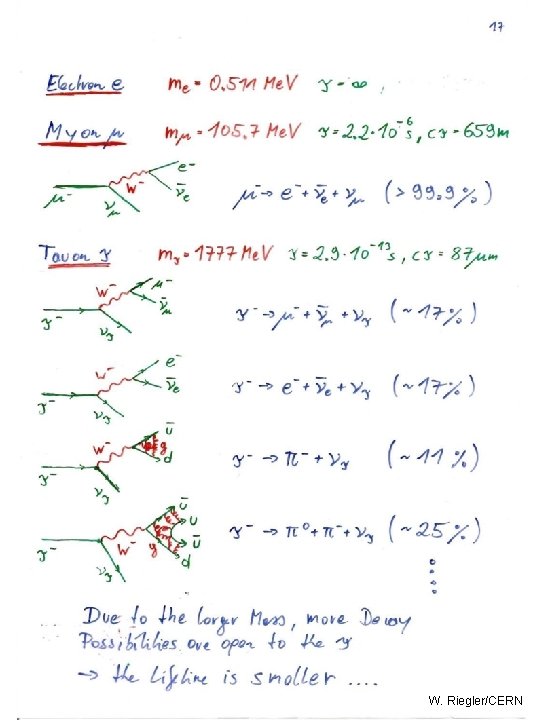 17
Electron e me = 0.511 MeV τ = ∞,
Myon μ mμ = 105.7 MeV τ = 2.2·10⁻⁶ s, cτ = 659 m
μ⁻ W⁻ e⁻ ν̄e νμ μ⁻ → e⁻ + ν̄e + νμ (> 99.9 %)
Tauon τ mτ = 1777 MeV τ = 2.9·10⁻¹³ s, cτ = 87 μm
τ⁻ W⁻ μ⁻ ν̄μ ντ τ⁻ → μ⁻ + ν̄μ + ντ (~ 17 %)
τ⁻ W⁻ e⁻ ν̄e ντ τ⁻ → e⁻ + ν̄e + ντ (~ 17 %)
τ⁻ W⁻ ū g d ντ τ⁻ → π⁻ + ντ (~ 11 %)
τ⁻ W⁻ g ū u ū d ντ τ⁻ → π⁰ + π⁻ + ντ (~ 25 %)
Due to the larger Mass, more Decay
Possibilities are open to the τ
→ the Lifetime is smaller ....
W. Riegler/CERN